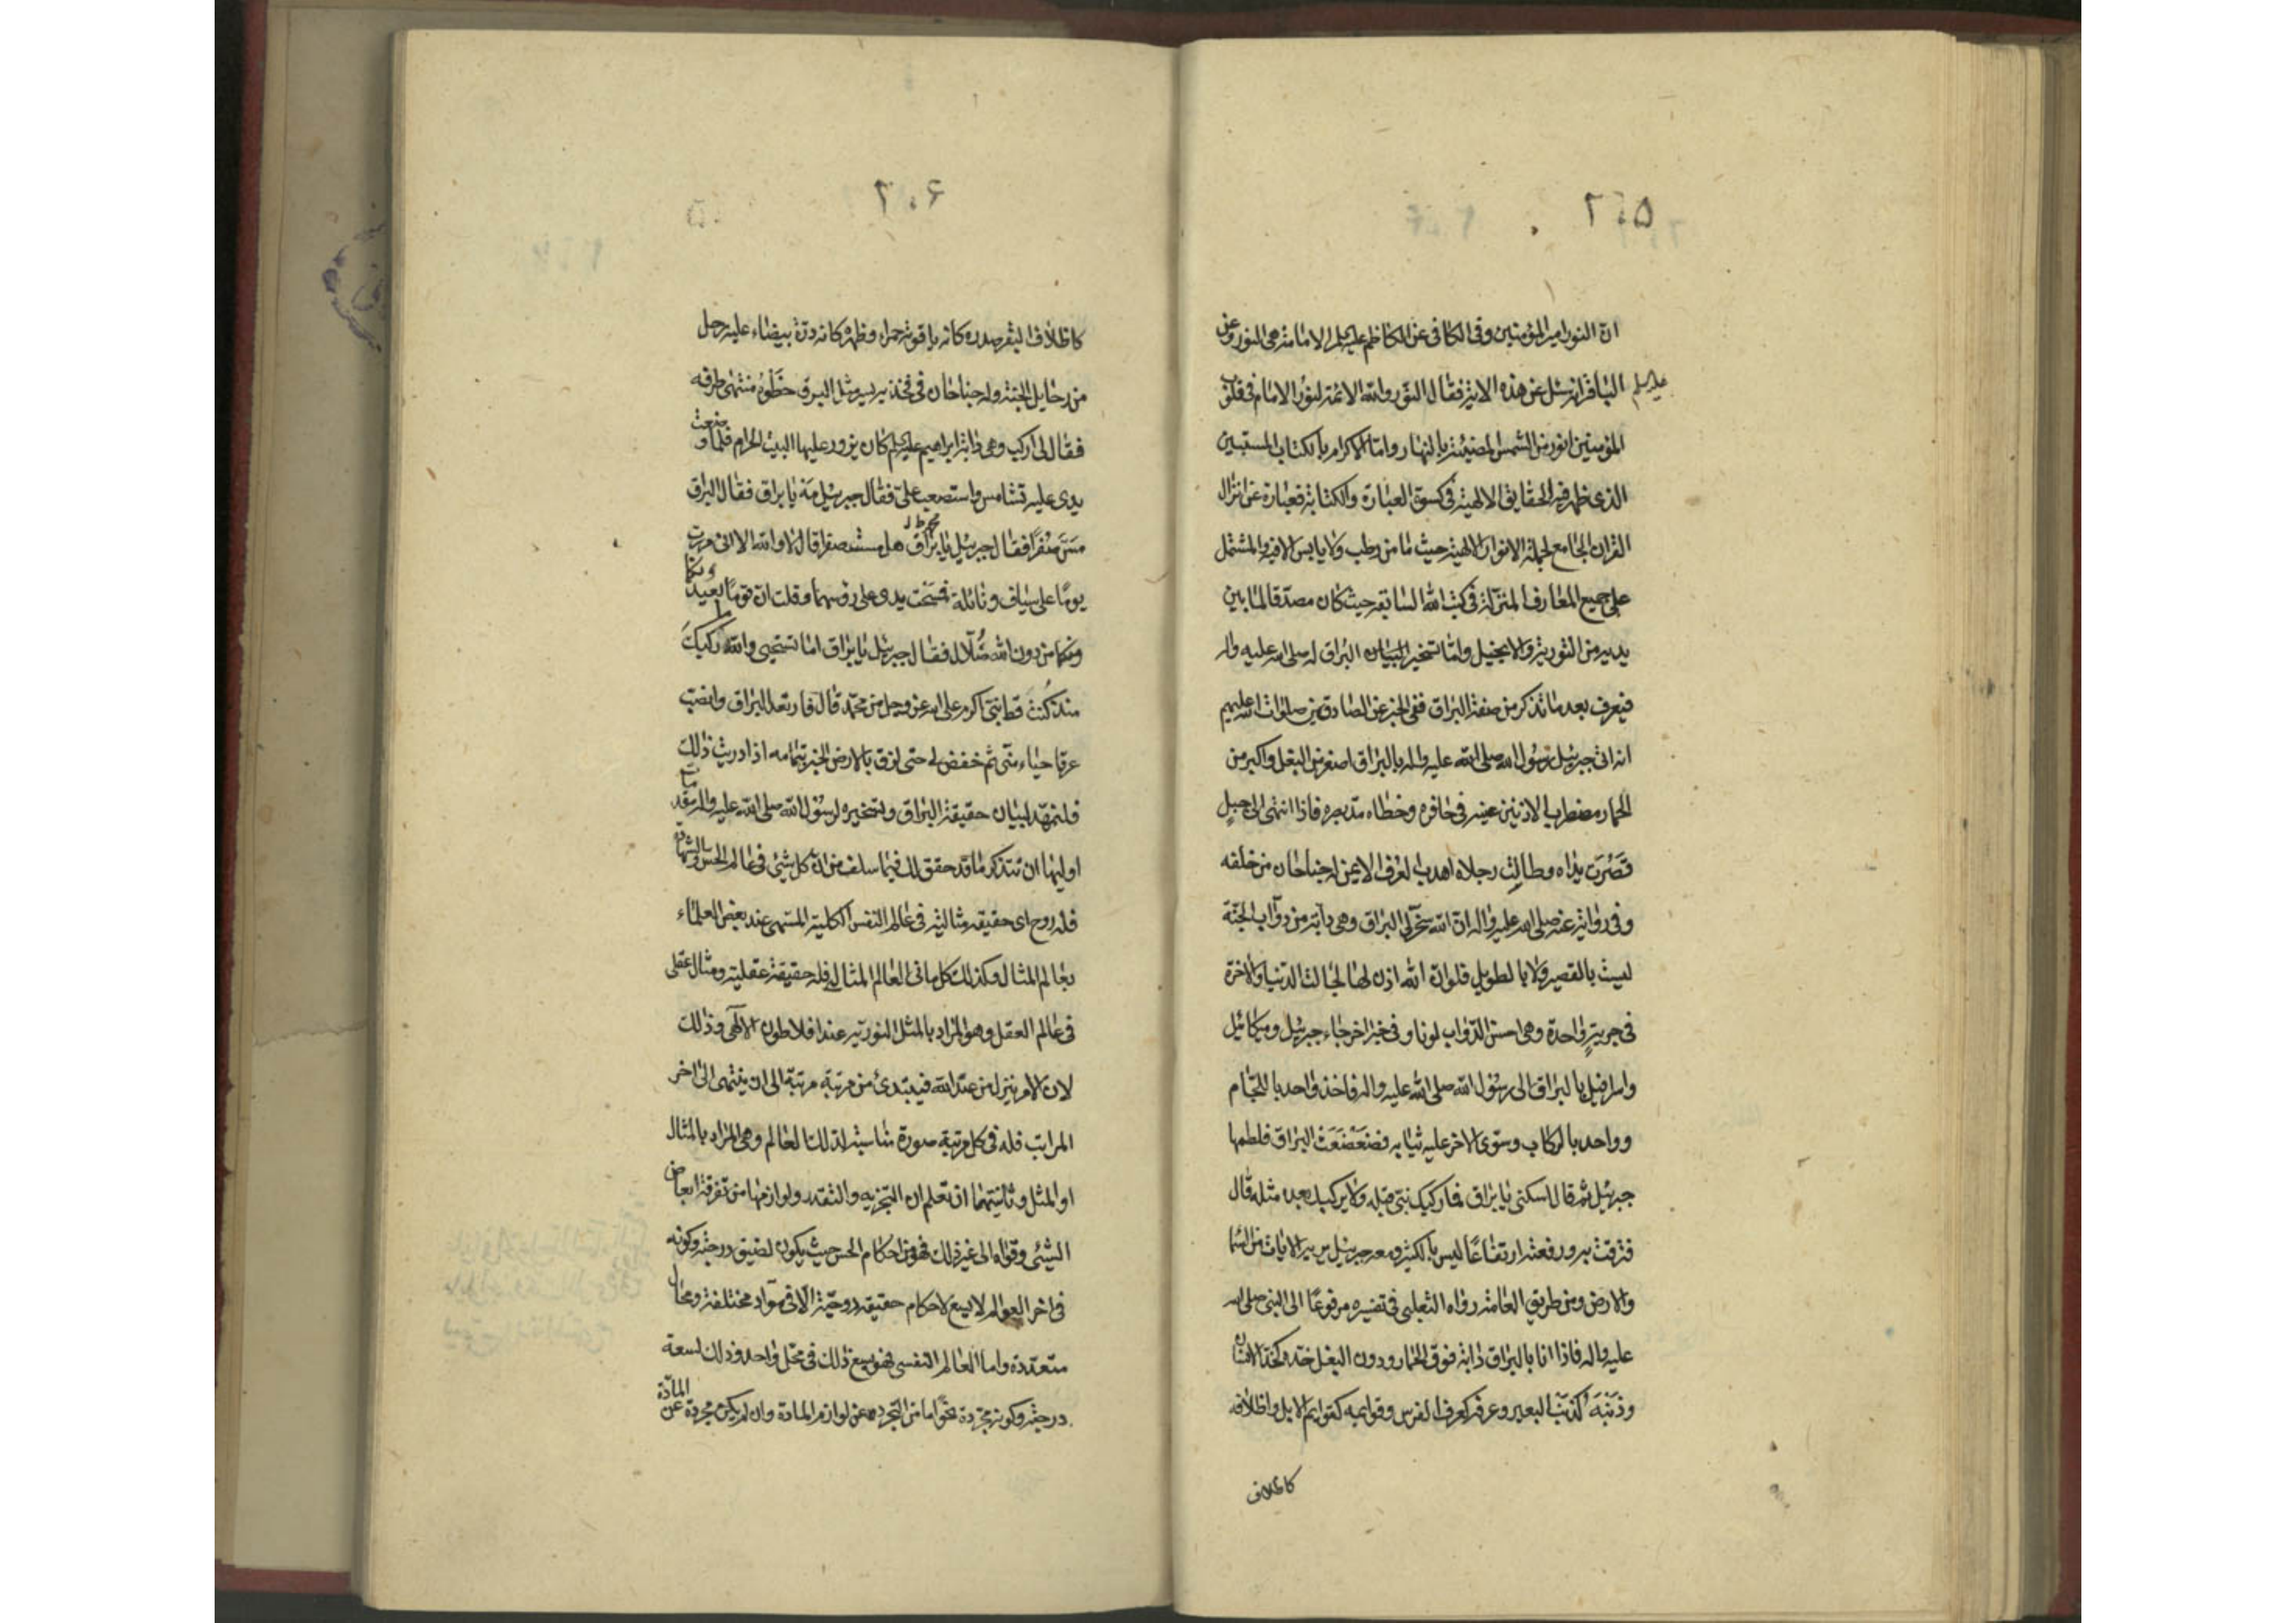 ٢٠۵
ان النور امير المؤمنين وفى الكافى عن الكاظم عليه السلم الامامة هى النور وعن
الباقر انه سئل عن هذه الاية فقال النور والله الائمة لنور الامام فى قلوب
عليه السلم
المؤمنين انور من الشمس المضيئة بالنهار واما الاكرام بالكتاب المستبين
الذى ظهر فيه الحقايق الالهية فى كسوة العبارة والكتابة فعبارة عن انزال
القران الجامع لجملة الانوار الالهية حيث ما من رطب ولا يابس الا فيه والمشتمل
على جميع المعارف المنزلة فى كتب الله السابقة حيث كان مصدقا لما بين
يديه من التورية والانجيل واما تسخير البراق له صلى الله عليه واله
فيعرف بعد ما نذكر من صفة البراق ففى الخبر عن الصادقين صلوات الله عليهم
انه اتى جبرئيل رسول الله صلى الله عليه واله بالبراق اصغر من البغل واكبر من
الحمار مضطرب الاذنين عينه فى حافره وخطاه مد بصره فاذا انتهى الى جبل
قصرت يداه وطالت رجلاه اهدب العرف الايمن له جناحان من خلفه
وفى رواية عنه صلى الله عليه واله ان الله سخر لى البراق وهى دابة من دواب الجنة
ليست بالقصير ولا بالطويل فلو ان الله اذن لها لجالت الدنيا والاخرة
فى جرية واحدة وهى احسن الدواب لونا وفى خبر اخر جاء جبرئيل وميكائيل
واسرافيل بالبراق الى رسول الله صلى الله عليه واله فاخذ واحد باللجام
وواحد بالركاب وسوى الاخر عليه ثيابه فضعضعت البراق فلطمها
جبرئيل ثم قال اسكنى يا براق فما ركبك نبى قبله ولا يركبك بعده مثله قال
فترقت به ورفعته ارتفاعا ليس بالكثير ومعه جبرئيل يريه الايات من السماء
والارض ومن طريق العامة رواه الثعلبى فى تفسيره مرفوعا الى النبى صلى الله
عليه واله فاذا انا بالبراق دابة فوق الحمار ودون البغل خده كخد الانسان
وذنبه كذنب البعير وعرفه كعرف الفرس وقوايمه كقوايم الابل واظلافه
كاظلاف
٢٠۶
كاظلاف البقر صدره كانه ياقوتة حمراء وظهره كانه درة بيضاء عليه رحل
من رحايل الجنة وله جناحان فى فخذيه يسير مثل البرق خطوه منتهى طرفه
فقال لى اركب وهى دابة ابراهيم عليه السلم كان يزور عليها البيت الحرام فلما وضعت
يدى عليه تشامس واستصعب على فقال جبرئيل مه يا براق فقال البراق
مس صفرا فقال جبرئيل يا براق هل مسست صفرا قال لا والله الا انى مررت
يوما على سياف ونائلة فمسحت يدى على رؤسهما وقلت ان قوما
من دون الله ضلال فقال جبرئيل يا براق اما تستحيى والله ما ركبك
منذ كنت قط نبى اكرم على الله عز وجل من محمد قال فارتعد البراق وانصب
عرقا حياء منى ثم خفض لى حتى لزق بالارض الخبر بتمامه اذا دريت ذلك
فلنمهد لبيان حقيقة البراق وتسخيره لرسول الله صلى الله عليه واله مقدمات
اوليها ان نتذكر ما قد حقق لك فيما سلف من ان كل شئ فى عالم الحس والشهادة
فله روح اى حقيقة مثالية فى عالم النفس الكلية المسمى عند بعض العلماء
بعالم المثال وكذلك كل ما فى العالم المثالى فله حقيقة عقلية ومثال عقلى
فى عالم العقل وهو المراد بالمثل النورية عند افلاطون الالهى وذلك
لان الامر ينزل من عند الله فيبتدئ من مرتبة مرتبة الى ان ينتهى الى اخر
المراتب فله فى كل مرتبة صورة مناسبة لذلك العالم وهى المراد بالمثال
او المثل وثانيتهما ان تعلم ان التجزيه والتقدر ولوازمها من تفرقة ابعاض
الشئ وقواه الى غير ذلك فهو من احكام الحس حيث يكون لضيق درجته وكونه
فى اخر العوالم لا يسع لاحكام حقيقة روحية الا فى مواد مختلفة ومحال
متعددة واما العالم النفسى فهو يسع ذلك فى محل واحد وذلك لسعة
درجته وكونه مجردة نحوا ما من التجرد عن لوازم المادة وان لم يكن مجردة عن المادة